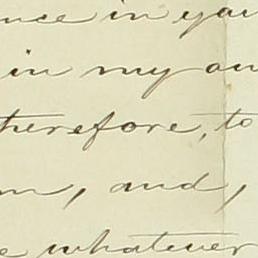 nce in you
in my ow
therefore, to
m, and,
e whatever